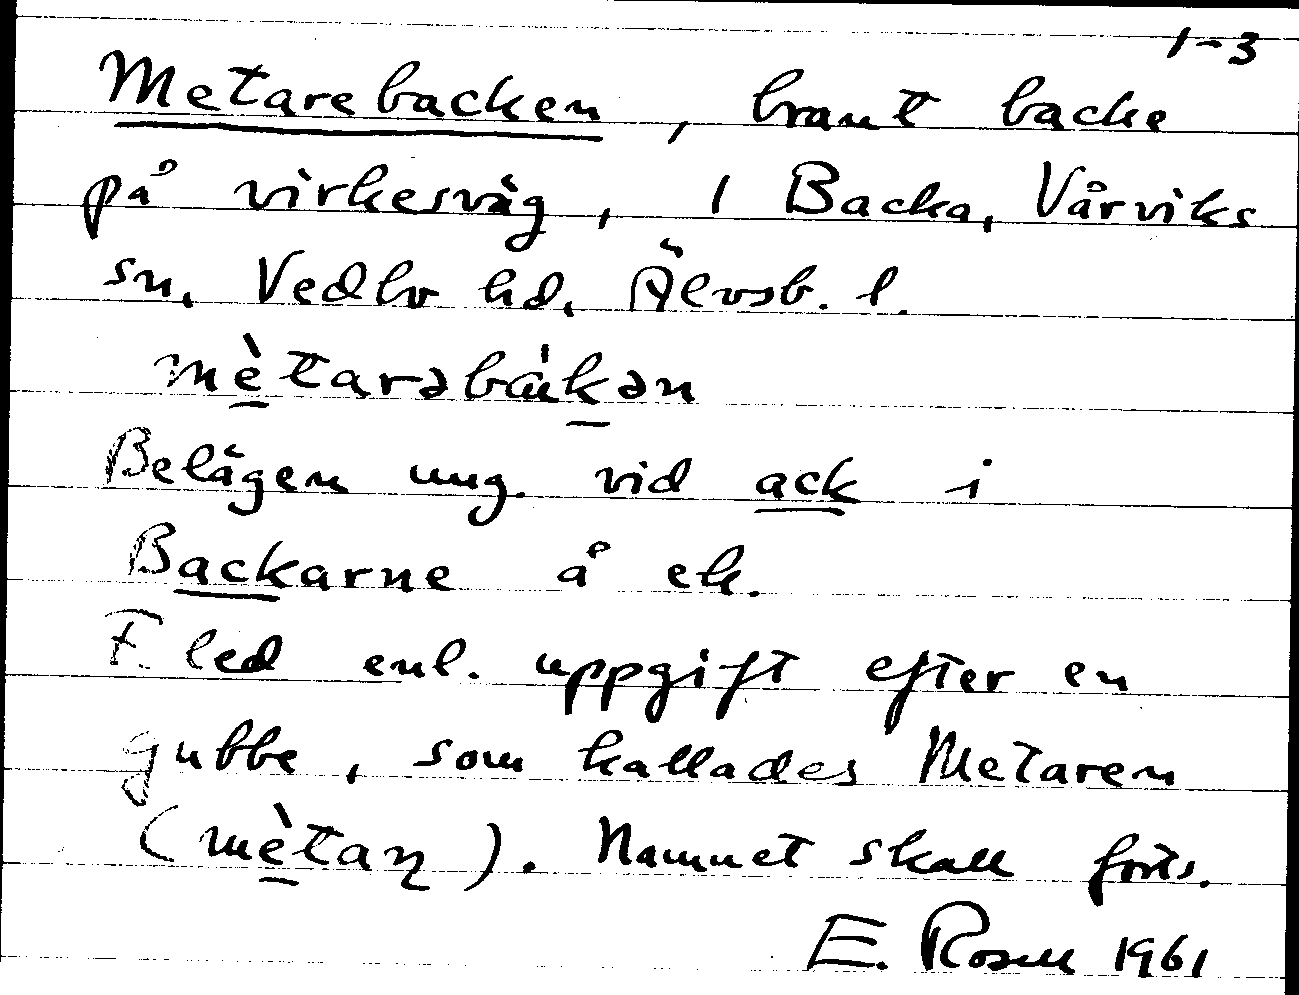 1-3
Metarebacken, brant backe
på virkesväg, 1 Backa, Vårviks
sn, Vedbo hd, Älvsb. l.
mètarəbák̠ən
Belägen ung. vid ack i
Backarne å ek.
F. led enl. uppgift efter en
gubbe, som kallades Metaren
(mètaɳ). Namnet skall forts.
E. Rosell 1961